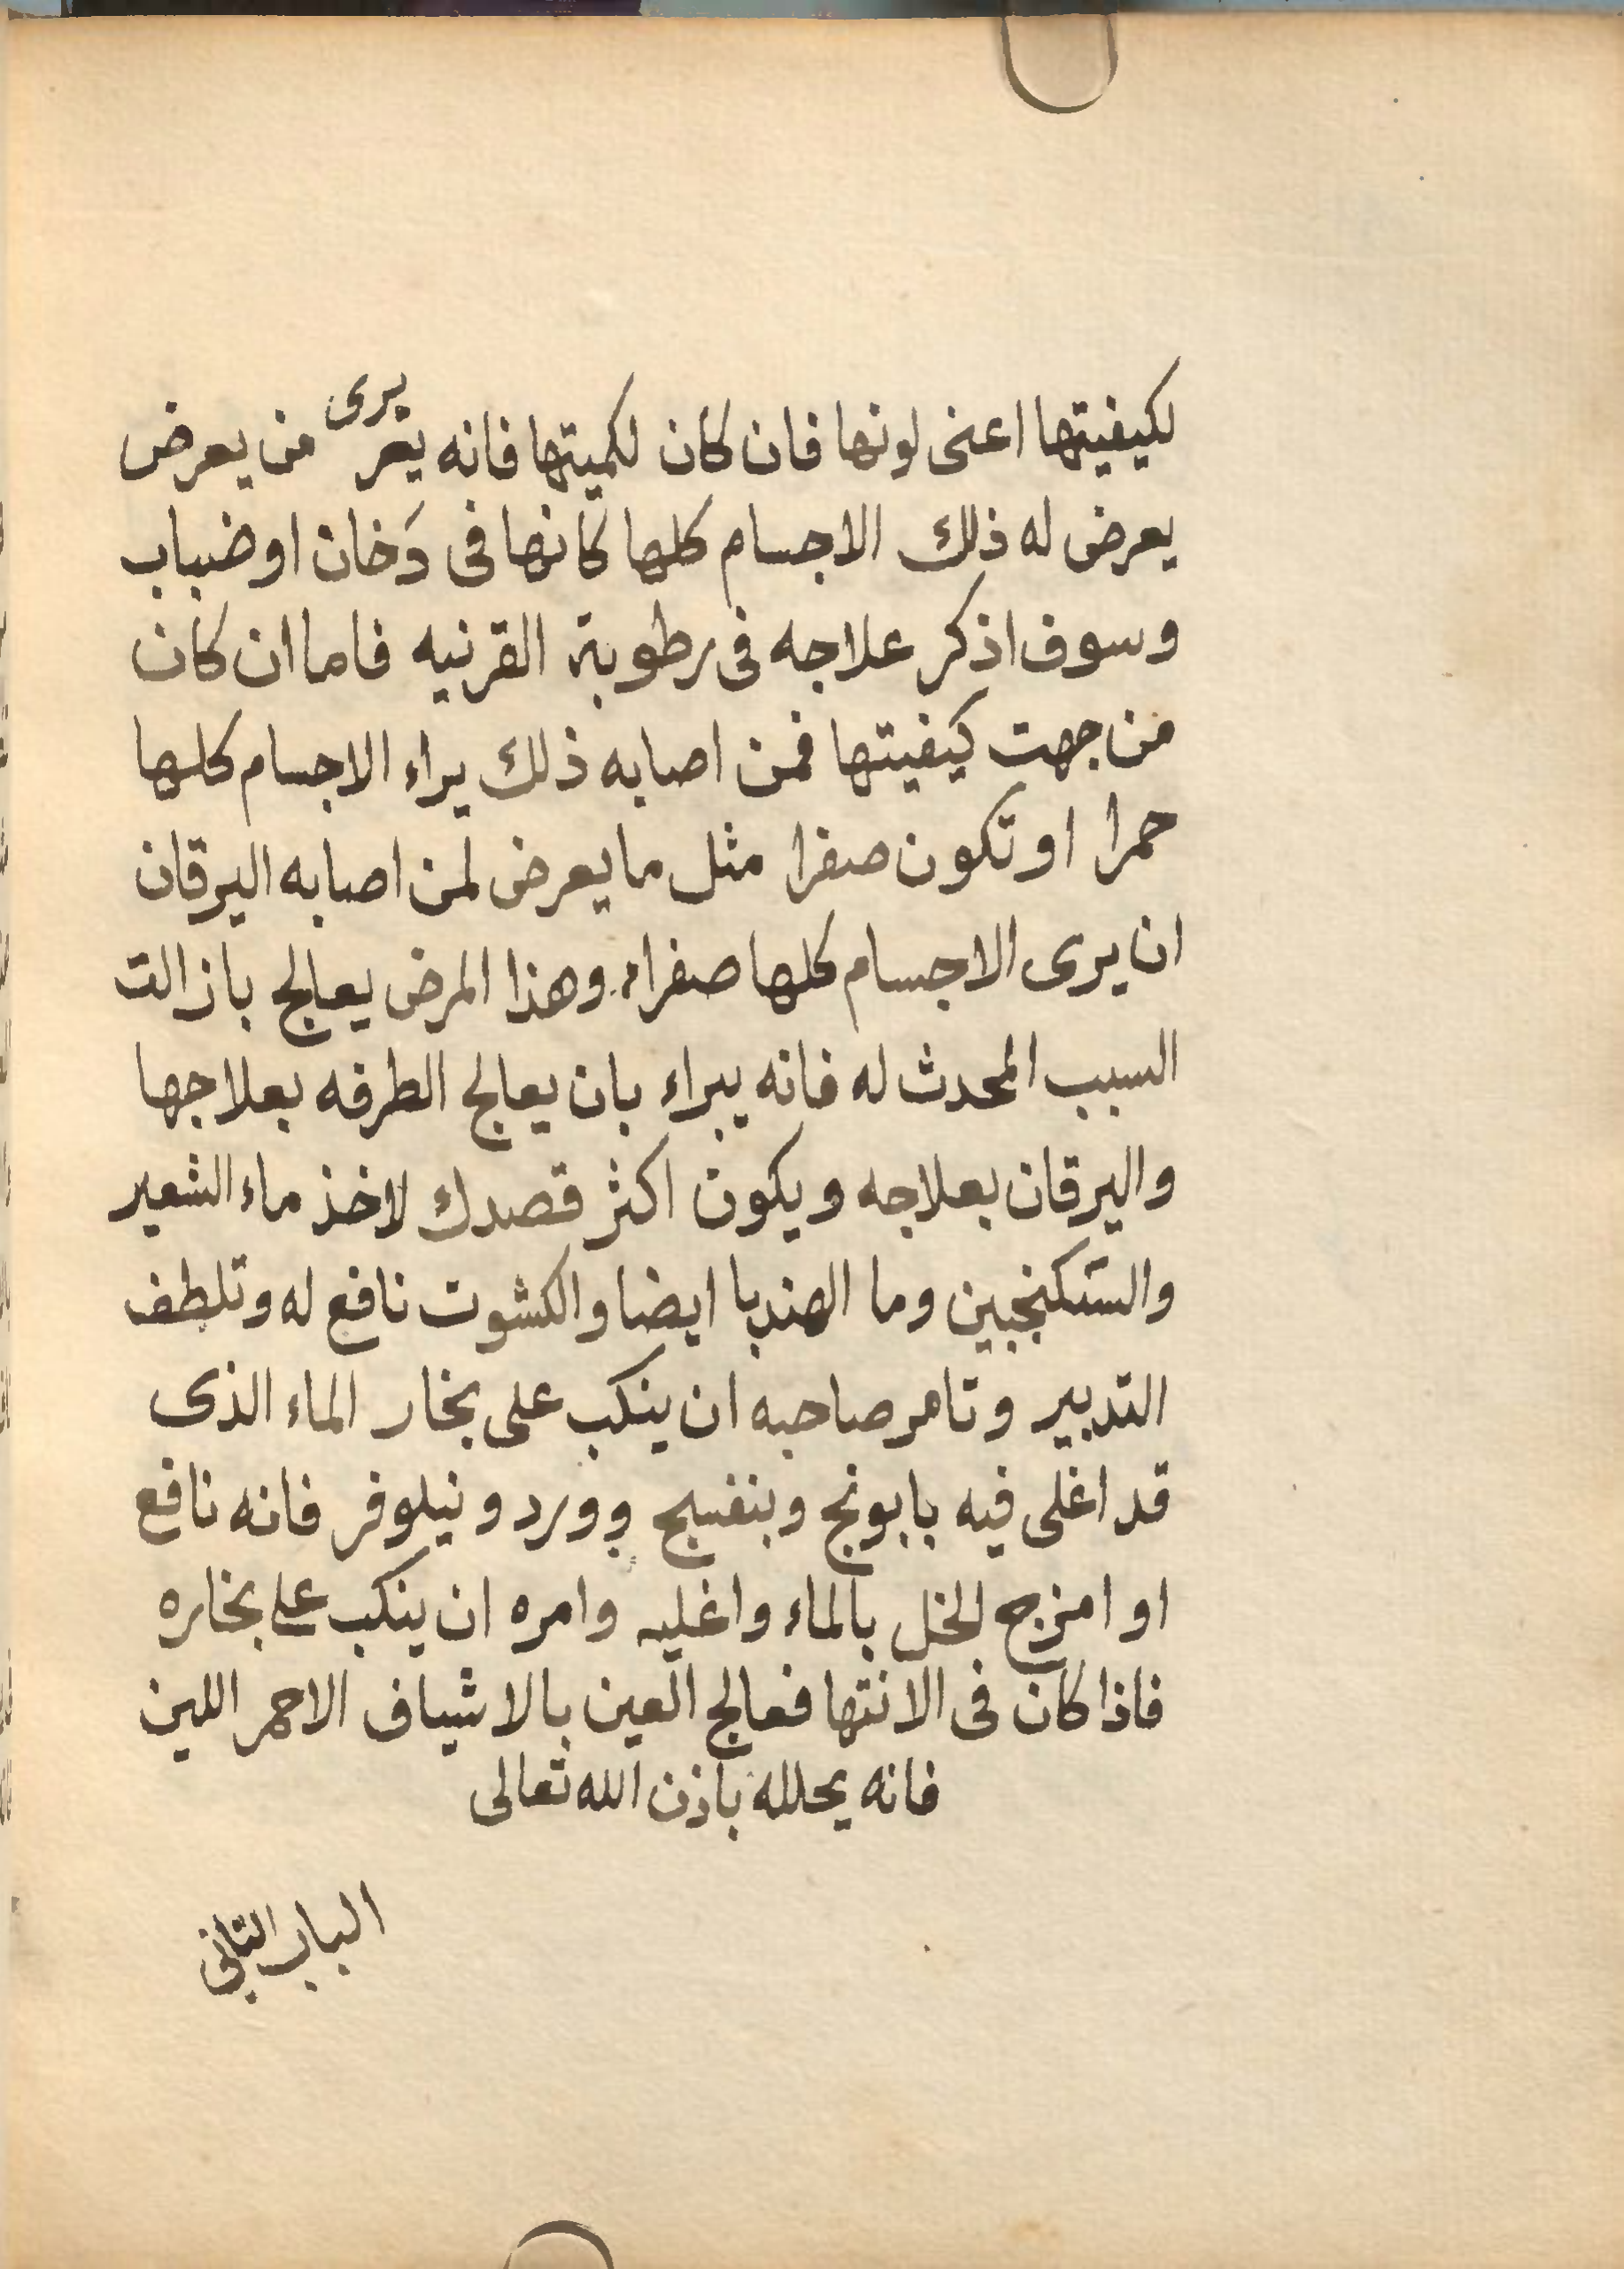 لكيفيتها اعنى لونها فان كان لكميتها فانه يرى من يعرض
يعرض له ذلك الاجسام كلها كانها فى دَخان او ضباب
وسوف اذكر علاجه فى رطوبة القرنيه فاما ان كان
من جهت كيفيتها فمن اصابه ذلك يراء الاجسام كلها
حمرا او تكون صفرا مثل ما يعرض لمن اصابه اليرقان
ان يرى الاجسام كلها صفراء وهذا المرض يعالج بازالت
السبب المحدث له فانه يبراء بان يعالج الطرفه بعلاجها
واليرقان بعلاجه ويكون اكثر قصدك لاخذ ماء الشعير
والسكنجبين وما الهندبا ايضا والكشوت نافع له وتلطف
التدبير وتامر صاحبه ان ينكب على بخار الماء الذى
قد اغلى فيه بابونج وبنفسج وورد ونيلوفر فانه نافع
او امزج الخل بالماء واغليه وامره ان ينكب على بخاره
فاذا كان فى الانتها فعالج العين بالاشياف الاحمر اللين
فانه يحلله باذن الله تعالى
الباب الثانى